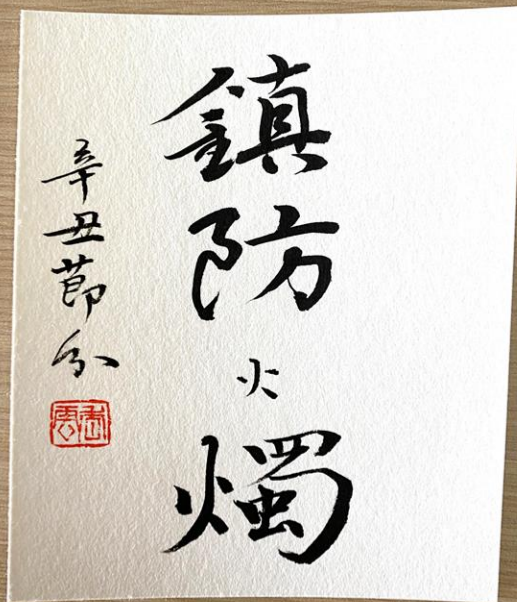 鎮防火燭
辛丑節分